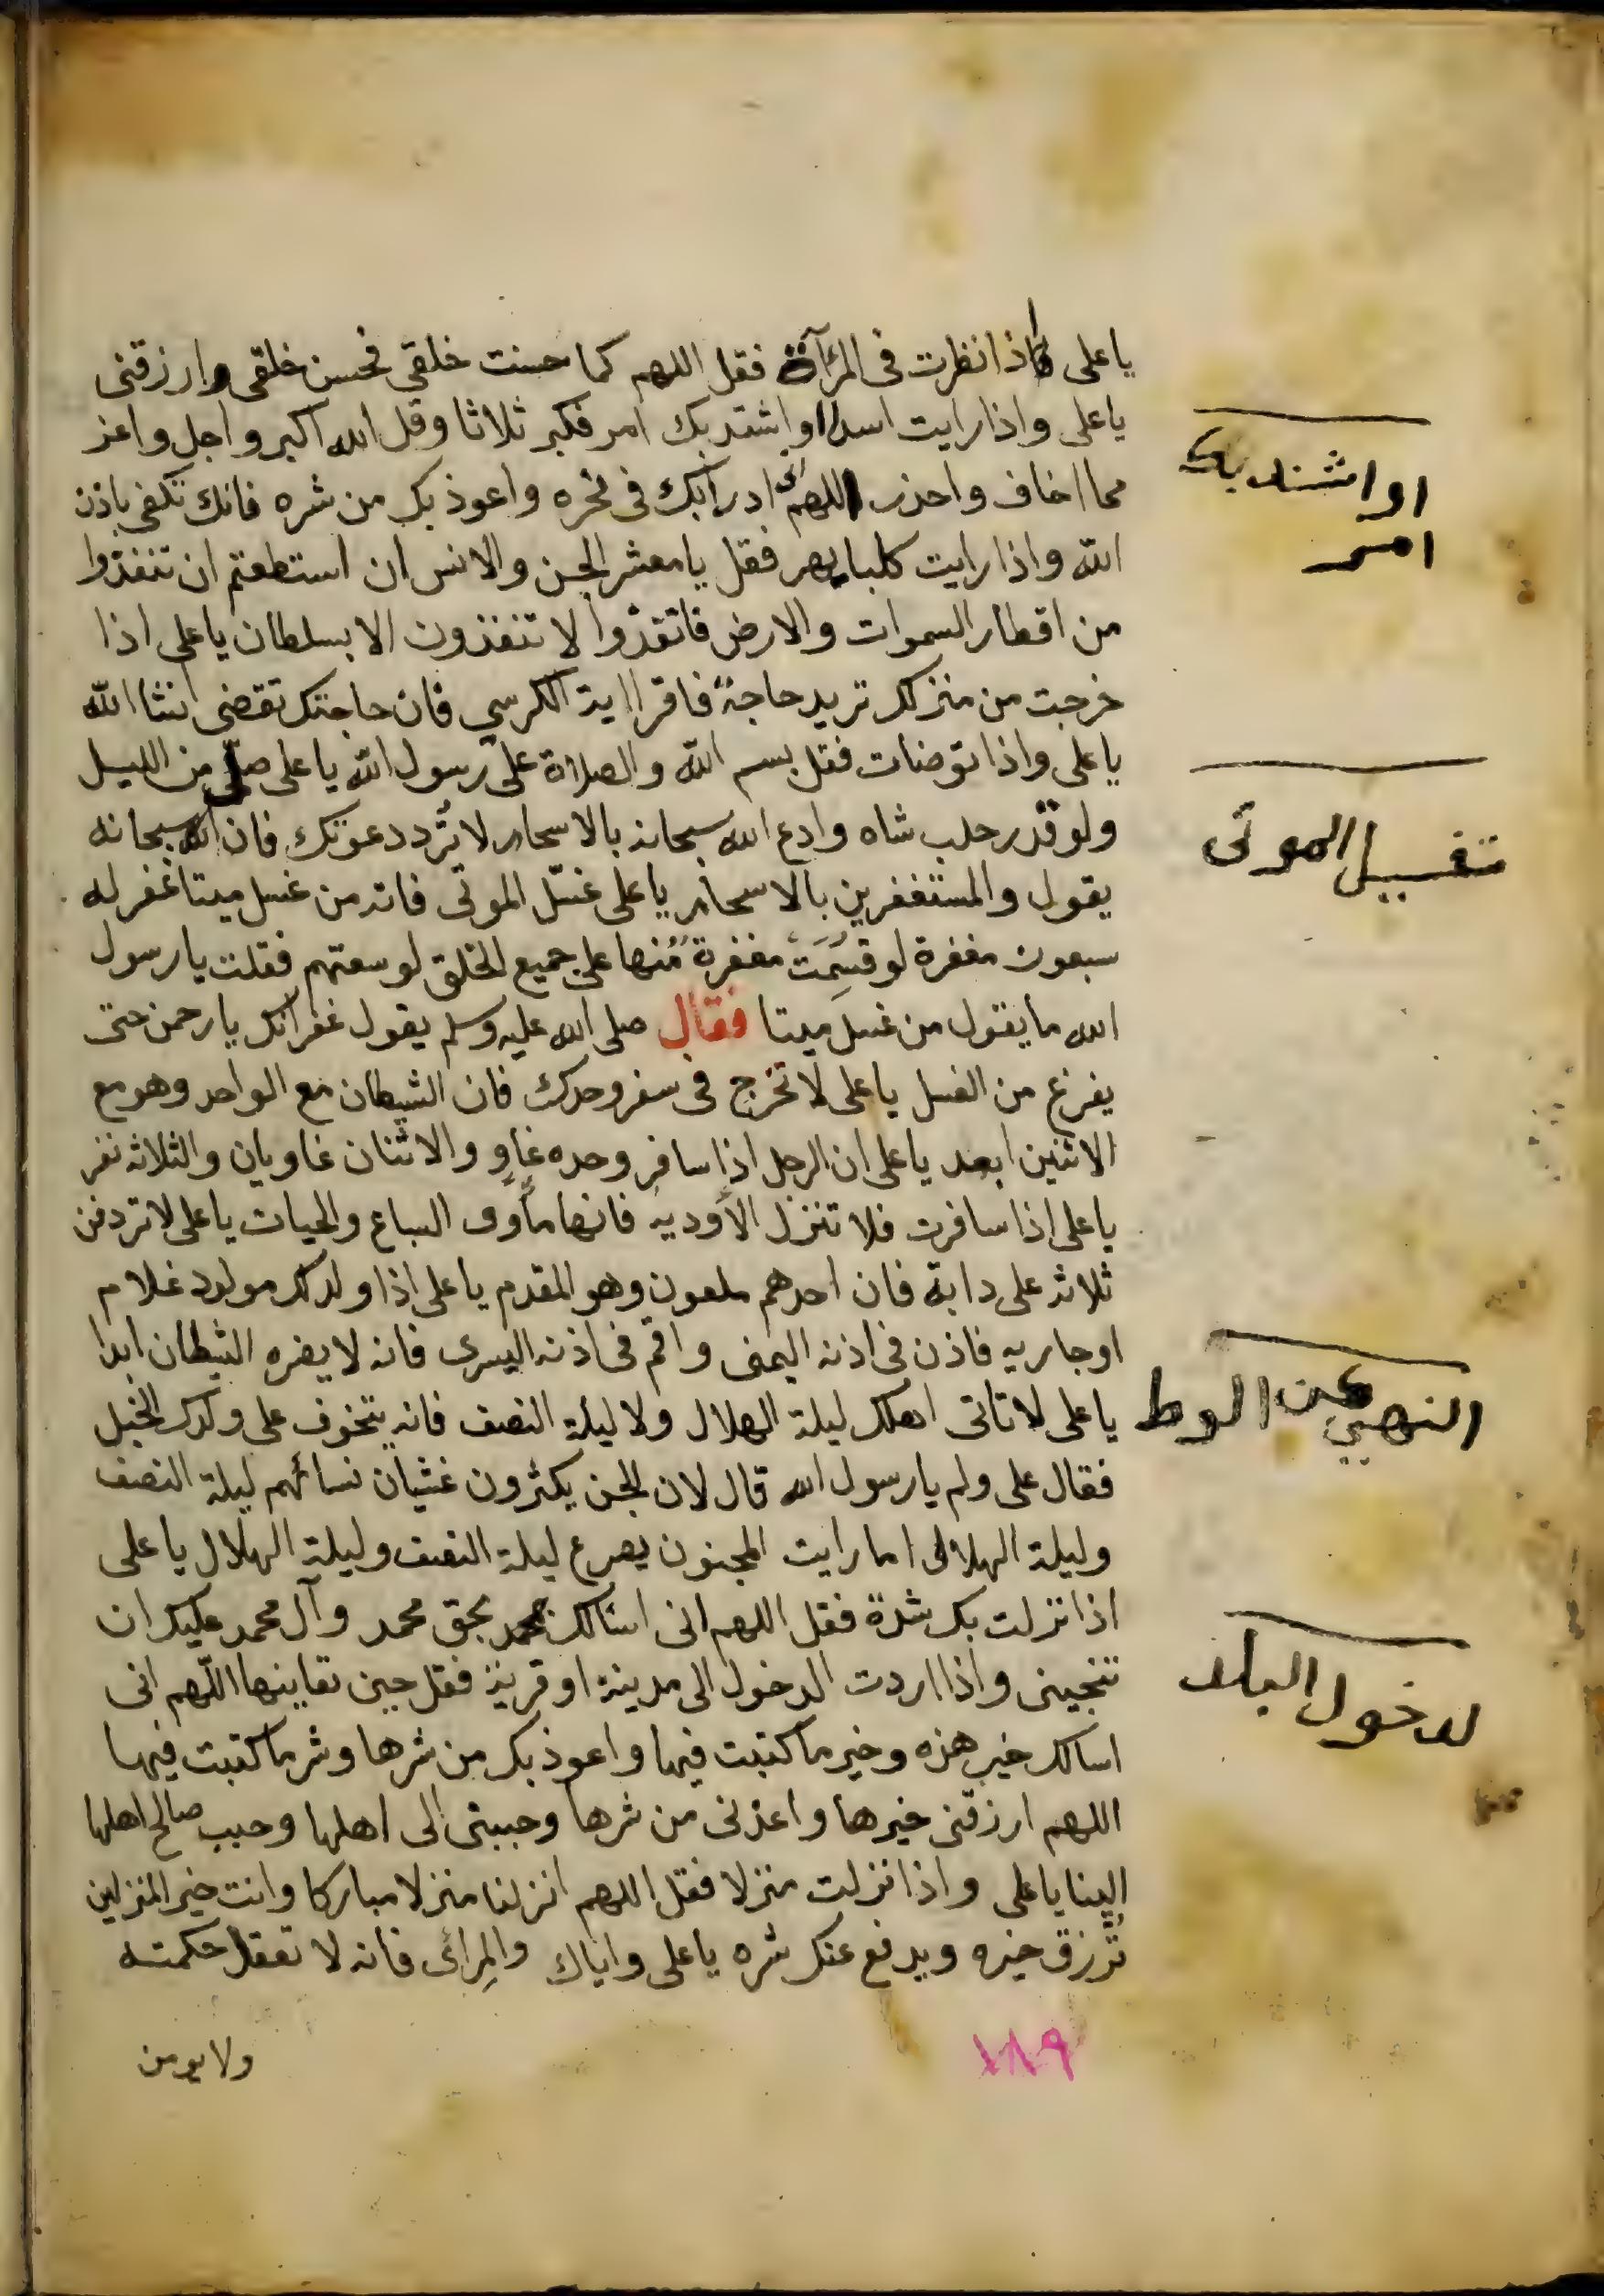 يا على اذا نظرت فى المرآة فقل اللهم كما حسنت خلقي فحسن خلقى وارزقنى
يا على واذا رايت اسدا او اشتد بك امر فكبر ثلاثا وقل الله اكبر واجل واعز
مما اخاف واحذر اللهم ادرأبك فى نحره واعوذ بك من شره فانك تكفى باذن
الله واذا رايت كلبا يهر فقل يا معشر الجن والانس ان استطعتم ان تنفذوا
من اقطار السموات والارض فانفذوا لا تنفذون الا بسلطان يا على اذا
خرجت من منزلك تريد حاجة فاقرا اية الكرسي فان حاجتك تقضى انشا الله
يا على واذا توضات فقل بسم الله والصلاة على رسول الله يا على صلى من الليل
ولو قدر حلب شاه وادع الله سبحانه بالاسحار لا تُرد دعوتك فان الله سبحانه
يقول والمستغفرين بالاسحار يا على غسّل الموتى فانه من غسل ميتا غفر له
سبعون مغفرة لو قسِمَتْ مغفرة مُنها على جميع الخلق لوسعتهم فقلت يا رسول
الله ما يقول من غسل ميتا فقال صلى الله عليه وسلم يقول غفرانك يا رحمن حتى
يفرغ من الغسل يا على لا تخرج فى سفر وحدك فان الشيطان مع الواحد وهو مع
الاثنين ابعد يا على ان الرجل اذا سافر وحده غاوٍ والاثنان غاويان والثلاثه نفر
يا على اذا سافرت فلا تنزل الأودية فانها مأوى السباع والحيات يا على لا تردفن
ثلاثه على دابة فان احدهم ملعون وهو المقدم يا على اذا ولد لك مولود غلام
او جاريه فاذن فى اذنه اليمنى واقم فى اذنه اليسرى فانه لا يضره الشيطان ابدا
يا على لا تاتى اهلك ليلة الهلال ولا ليلة النصف فانه يتخوف على ولدك الخبل
فقال على ولم يا رسول الله قال لان الجن يكثرون غشيان نسائهم ليلة النصف
وليلة الهلال اما رايت المجنون يصرع ليلة النصف وليلة الهلال يا على
اذا نزلت بك شدة فقل اللهم انى اسالك بحق محمد وآل محمد عليك ان
تنجينى واذا اردت الدخول الى مدينة او قرية فقل حين تعاينها اللّهم انى
اسالك خير هذه وخير ما كتبت فيها واعوذ بك من شرها وشر ما كتبت فيها
اللهم ارزقنى خيرها واعذنى من شرها وحببنى الى اهلها وحبب صالح اهلها
الينا يا على واذا نزلت منزلا فقل اللهم انزلنا منزلا مباركا وانت خير المنزلين
تُرزق خيره ويدفع عنك شره يا على واياك والمِرائ فانه لا تعقل حكمته
ولا يومن
١٨٩
او اشتد بك
امر
تغسيل الموتى
النهي عن الوط
لدخول البلد